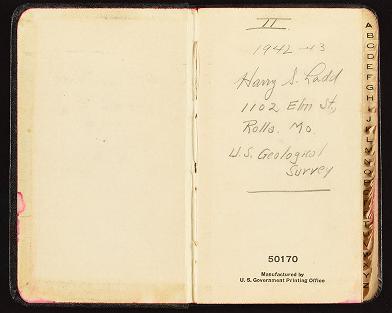 II
1942-43
Harry S. Ladd
1102 Elm St,
Rolla. Mo.
U.S. Geological
Survey
50170
Manufactured by
U. S. Government Printing Office
A
B
C
D
E
F
G
H